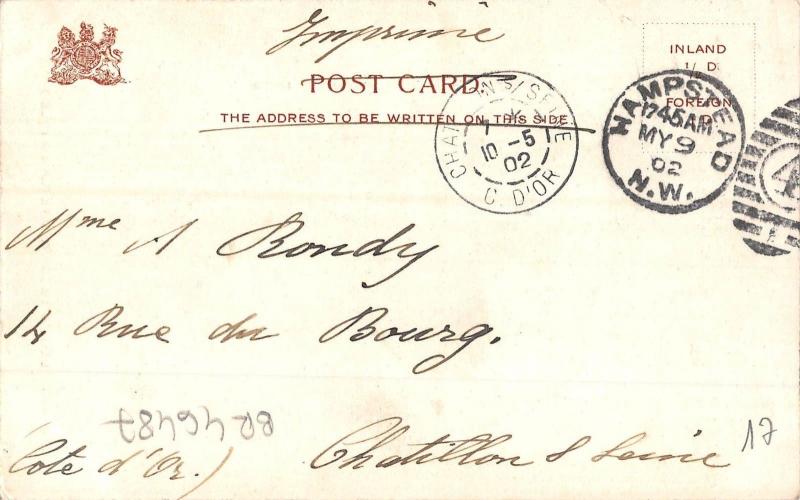 Imprimé
POST CARD.
THE ADDRESS TO BE WRITTEN ON THIS SIDE.
INLAND
½ D.
FOREIGN
D.
CHATILLON S/SEINE
10 - 5
02
C. D'OR
HAMPSTEAD
745AM
MY 9
02
N.W.
4
Mme A Rondy
14 Rue du Bourg.
Chatillon S Seine
Cote d'Or.)
17